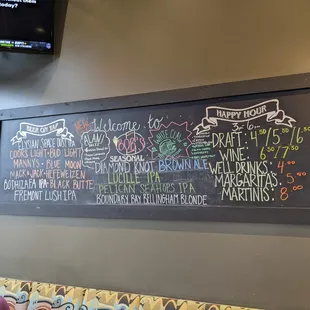 today?
BEER ON TAP
COORS LIGHT • BUD LIGHT
MANNYS • BLUE MOON
MACK & JACK • HEFEWEIZEN
BODHIZAFA IPA • BLACK BUTTE
FREMONT LUSH IPA
Welcome to
BOB'S
SEASONAL
WHITE CLAW
DIAMOND KNOT BROWN ALE
LUCILLE IPA
PELICAN SEAHOPS IPA
BOUNDARY BAY BELLINGHAM BLONDE
HAPPY HOUR
3-6
DRAFT: 4.50/5.50/7
WINE: 6.50/7.50
WELL DRINKS: 4.00
MARGARITAS: 5.00
MARTINIS: 8.00